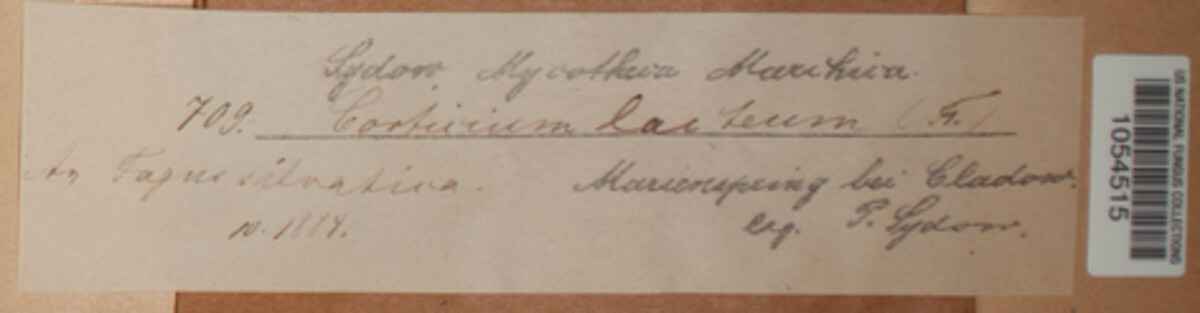 Sydow Mycotheca Marchica.
709. Corticium lacteum (Fr.)
An Fagus silvatica. Marienspring bei Cladow.
10. 1884. leg. P. Sydow.
US NATIONAL FUNGUS COLLECTIONS
1054515